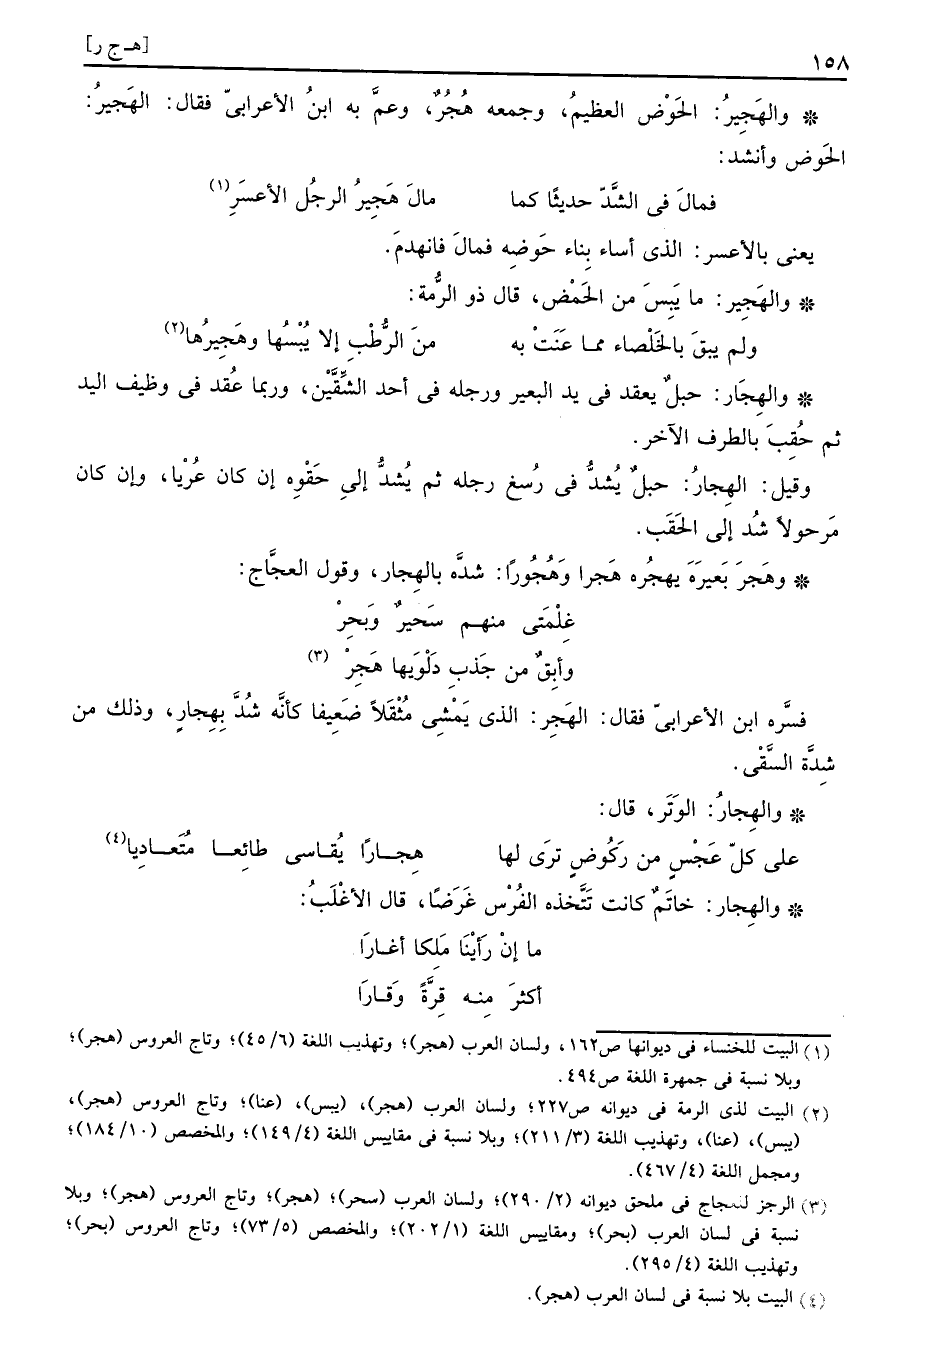 ١٥٨ [هـ ج ر]
* والهَجِيرُ: الحَوْض العظيمُ، وجمعه هُجُرٌ، وعمَّ به ابنُ الأعرابىّ فقال: الهَجيرُ:
الحَوض وأنشد:
فمالَ فى الشَّدّ حديثًا كما مالَ هَجِيرُ الرجُل الأعسَرِ(١)
يعنى بالأعسر: الذى أساء بِناء حَوضِه فمالَ فانهدمَ.
* والهَجِير: ما يَبِسَ من الحَمْض، قال ذو الرُّمة:
ولم يبقَ بالخَلْصاء مما عَنَتْ به منَ الرُّطْبِ إلا يُبْسُها وهَجِيرُها(٢)
* والهِجَار: حبلٌ يعقد فى يد البعير ورجله فى أحد الشِّقَّين، وربما عُقد فى وظيف اليد
ثم حُقِبَ بالطرف الآخر.
وقيل: الهِجارُ: حبلٌ يُشدُّ فى رُسغ رجله ثم يُشدُّ إلى حَقْوِه إن كان عُرْيا، وإن كان
مَرحولاً شُد إلى الحَقَب.
* وهَجرَ بَعيرَهَ يهجُره هَجرا وَهُجُورًا: شدَّه بالهِجار، وقول العجَّاج:
غِلْمَتى منهم سَحيرٌ وَبَحِرْ
وأبِقٌ من جَذبِ دَلْوَيها هَجِرْ (٣)
فسَّره ابن الأعرابىّ فقال: الهَجِر: الذى يَمْشِى مُثْقَلاً ضَعِيفا كأنَّه شُدَّ بِهِجارٍ، وذلك من
شِدَّة السَّقْى.
* والهِجارُ: الوَتَر، قال:
على كلّ عَجْسٍ من رَكُوضٍ ترَى لها هِجـارًا يُقـاسى طائِعـا مُتَعـادِيا(٤)
* والهِجار: خاتَمٌ كانت تَتَّخذه الفُرْس غَرَضًا، قال الأغْلَبُ:
ما إنْ رَأيْنَا مَلِكا أغـارَا
أكثرَ مِنـه قِرَّةً وَقـارَا
(١) البيت للخنساء فى ديوانها ص١٦٢، ولسان العرب (هجر)؛ وتهذيب اللغة (٦/ ٤٥)؛ وتاج العروس (هجر)؛
وبلا نسبة فى جمهرة اللغة ص٤٩٤.
(٢) البيت لذى الرمة فى ديوانه ص٢٢٧؛ ولسان العرب (هجر)، (يبس)، (عنا)؛ وتاج العروس (هجر)،
(يبس)، (عنا)، وتهذيب اللغة (٣/ ٢١١)؛ وبلا نسبة فى مقاييس اللغة (٤/ ١٤٩)؛ والمخصص (١٠/ ١٨٤)؛
ومجمل اللغة (٤/ ٤٦٧).
(٣) الرجز للعجاج فى ملحق ديوانه (٢/ ٢٩٠)؛ ولسان العرب (سحر)؛ (هجر)؛ وتاج العروس (هجر)؛ وبلا
نسبة فى لسان العرب (بحر)؛ ومقاييس اللغة (١/ ٢٠٢)؛ والمخصص (٥/ ٧٣)؛ وتاج العروس (بحر)؛
وتهذيب اللغة (٤/ ٢٩٥).
(٤) البيت بلا نسبة فى لسان العرب (هجر).